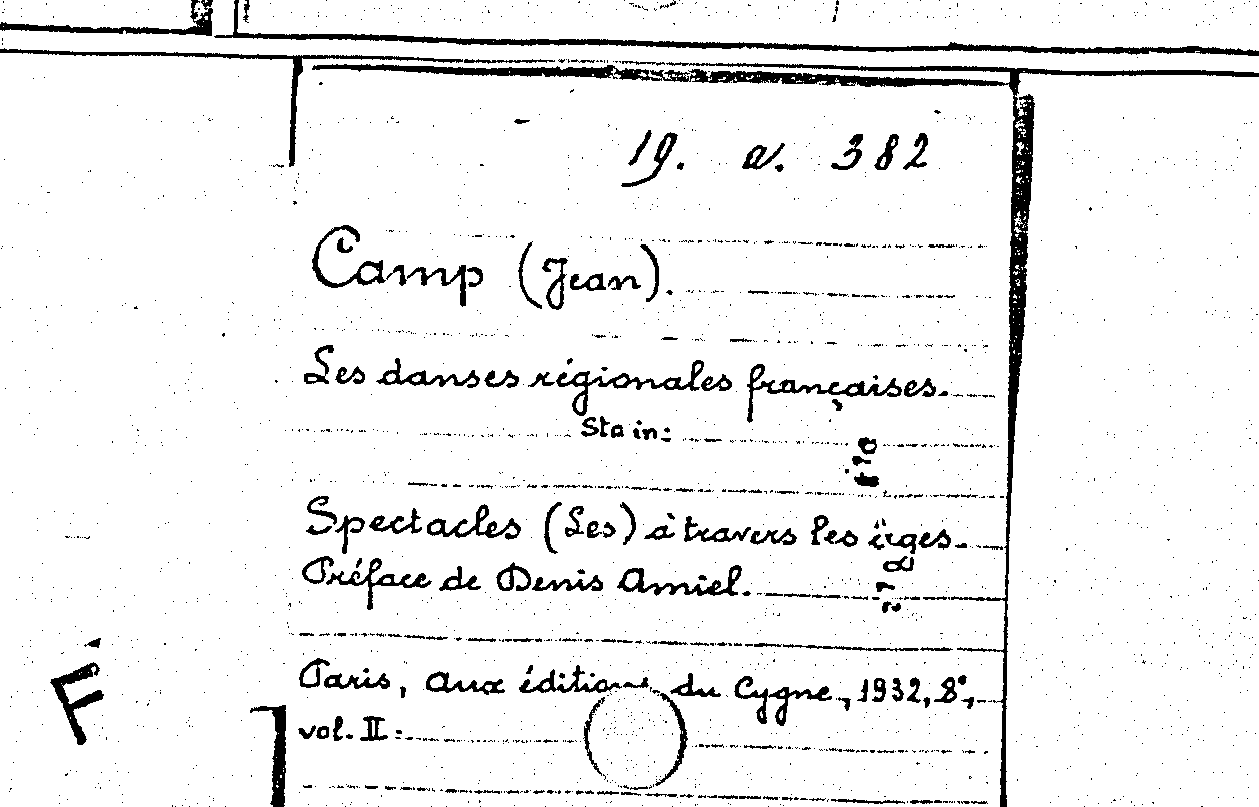 19. a. 382
Camp (Jean).
Les danses régionales françaises.
Sta in:
Spectacles (Les) à travers les âges.
Préface de Denis Amiel.
Paris, aux éditions du Cygne, 1932, 8°,
vol. II.
F